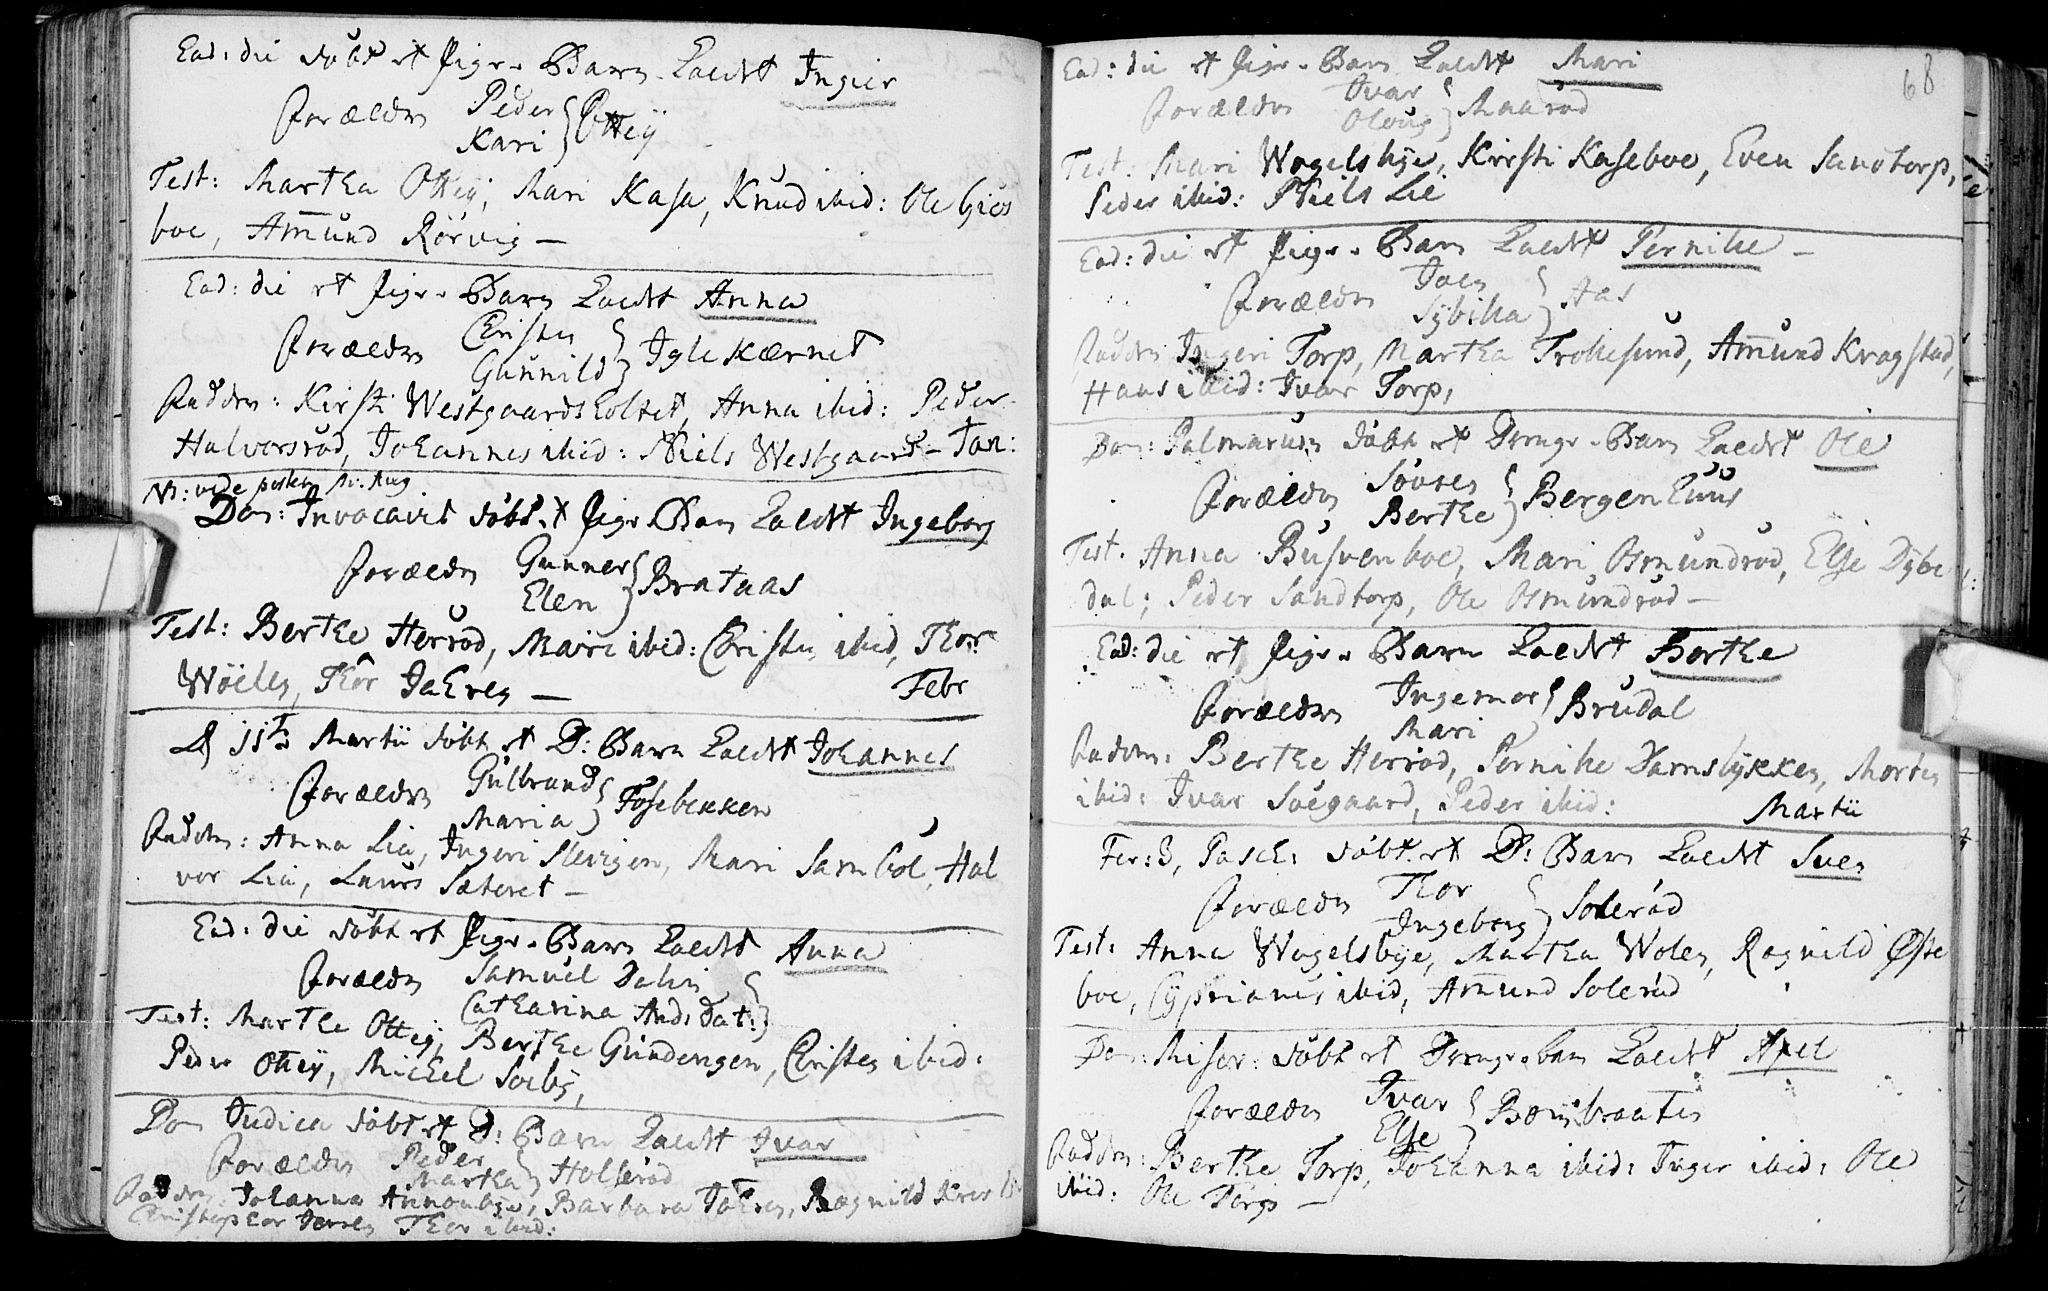 Ead: die döbt et Pige-Barn kaldet Ingier
Forældre Peder
Kari } Ottey
Test: Martha Ottey, Mari Kasa, Knud ibid: Ole Gies
boe, Amund Rörvig —
Ead: die et Pige-Barn kaldet Anna
Forældre Christen
Gunnild } Iglekærnet
Faddere: Kirsti Westgaardsholtet, Anna ibid: Peder
Halvorsröd, Johannes ibid: Niels Westgaard — Jan:
Dom: Invocavit döbt et Pige-Barn kaldet Ingeborg
Forældre Gunner
Elen } Brataas
Test: Berthe Herröd, Mari ibid: Christen ibid, Thor
Wölen, Thor Jahren — Febr
D 11te Martii döbt et D: Barn kaldet Johannes
Forældre Gulbrand
Maria } Fosebekken
Faddere: Anna Lie, Ingeri Slevigen, Mari Samböl, Hal
vor Lie, Laurs Sæteret —
Ead: die döbt et Pige-Barn kaldet Anna
Forældre Samuel Dalin
Catharina And: Dat: }
Test: Marthe Ottey, Berthe Gundengen, Christen ibid:
Peder Ottey, Michel Soeby,
Dom Judica döbt et D: Barn kaldet Ivar
Forældre Peder
Martha } Holleröd
Faddere Johanna Annonbye, Barbara Jahren, Ragnild
Christopher Jarren Thor ibid:
68
Ead: die et Pige-Barn kaldet Mari
Forældre Ivar
Oloug } Maaröd
Test: Mari Wogelsbye, Kirsti Kaseboe, Even Sandtorp,
Peder ibid: Niels Lie
Ead: die et Pige-Barn kaldet Pernike —
Forældre Joen
Sybilla } Aas
Faddere Ingeri Torp, Martha Trollesund, Amund Kragstad,
Hans ibid: Ivar Torp,
Dom: Palmarum döbt et Drenge-Barn kaldet Ole
Forældre Söuren
Berthe } Bergenhuus
Test. Anna Busvenboe, Mari Osmundröd, Else Dybe
dal; Peder Sandtorp, Ole Osmundröd —
Ead: die et Pige-Barn kaldet Berthe
Forældre Ingemar
Mari } Brudal
Faddere: Berthe Herröd, Pernike Damslykken, Morten
ibid: Ivar Soegaard, Peder ibid: Martii
Fer: 3, Pasch: döbt et D: Barn kaldet Sven
Forældre Thor
Ingeborg } Soleröd
Test: Anna Wogelsbye, Martha Wolen, Ragnild Öste
boe, Cyprianus ibid, Amund Soleröd
Dom: Miser: döbt et Drenge-barn kaldet Axel
Forældre Ivar
Else } Bönibraaten
Faddere: Berthe Torp, Johanna ibid: Inger ibid: Ole
ibid: Ole Torp —